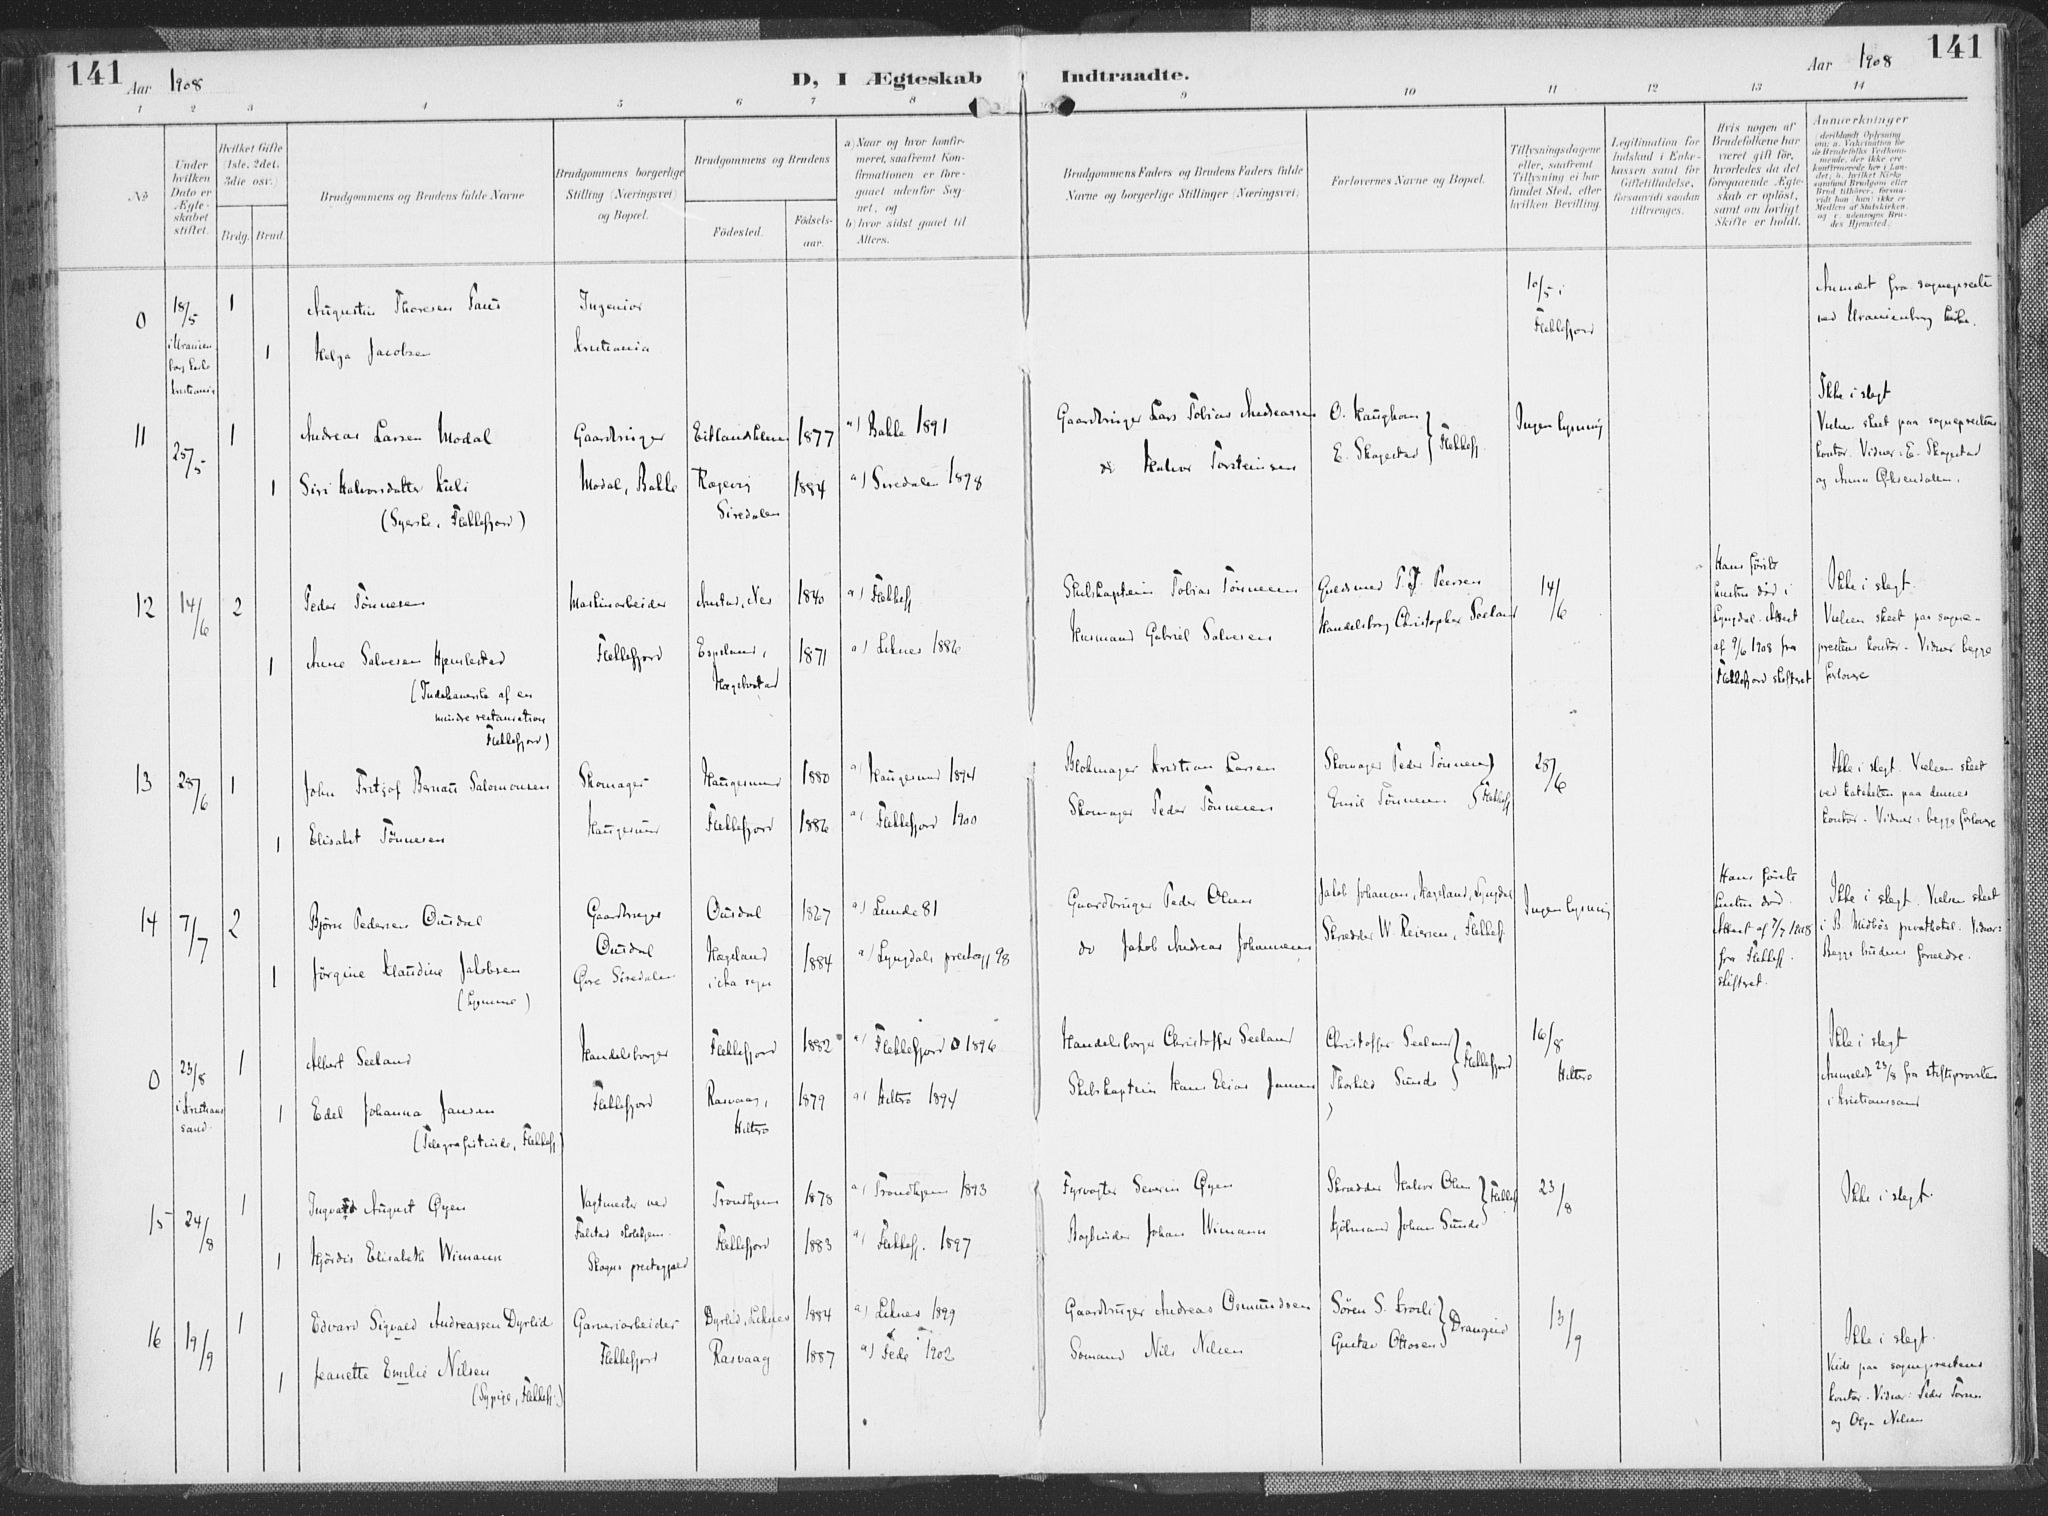 141 Aar 1908 D, I Ægteskab Indtraadte. Aar 1908 141
1 2 3 4 5 6 7 8 9 10 11 12 13 14
No
Under hvilken Dato er Ægteskabet stiftet.
Hvilket Gifte (1ste, 2det, 3die osv.)
Brdg. Brud.
Brudgommens og Brudens fulde Navne
Brudgommens borgerlige Stilling (Næringsvei) og Bopæl.
Brudgommens og Brudens
Födested.
Födselsaar.
a) Naar og hvor konfirmeret, saafremt Konfirmationen er foregaaet udenfor Sognet, og
b) hvor sidst gaaet til Alters.
Brudgommens Faders og Brudens Faders fulde Navne og borgerlige Stillinger (Næringsvei)
Forlovernes Navne og Bopæl.
Tillysningsdagene eller, saafremt Tillysning ei har fundet Sted, efter hvilken Bevilling.
Legitimation for Indskud i Enkekassen samt for Giftetilladelse, forsaavidt saadan tiltrænges.
Hvis nogen af Brudefolkene har været gift för, hvorledes da det foregaaende Ægteskab er oplöst, samt om lovligt Skifte er holdt.
Anmærkninger
0 18/5 1 Augustin Thoresen Paus Ingeniør 10/5 i Anmeldt fra sogneprestn
Flekkefjord ved Uranienborg kirke.
i Uranienborg kirke Kristiania
1 Helga Jacobsen Kristiania
Ikke i slegt
11 25/5 1 Andreas Larsen Modal Gaardbruger 1877 a) Bakke 1891 Gaardbruger Lars Tobias Andreassen O. Haughom Ingen lysning Vielsen skeet paa sogneprestens
1 Siri Halvorsdatter Modal, Bakke 1884 a) Siredalen 1898 do Halvor Torsteinsen E. Skagestad Flekkefj kontor. Vidner: E. Skagestad
(Syerske, Flekkefjord) Siredalen og Anna
12 14/6 2 Peder Tönnesen Maskinarbeider 1840 a) Flekkefj Skibskaptein Tobias Tönnesen Guldsmed P. J. Peersen 14/6 Hans förste hustru död i Lyngdal. Attest af 9/6 1908 fra Flekkefjord skifteret
Ikke i slegt.
Vielsen skeet paa sogneprestens kontor. Vidner begge forlovere
1 Anne Salvesen Flekkefjord Espeland, Hægebostad 1871 a) Liknes 1886 Husmand Gabriel Salvesen Handelsborg Christopher Seeland
(Indehaverske af en
mindre restauration
Flekkefjord)
13 28/6 1 John Fritjof Bernau Salomonsen Skomager Haugesund 1880 a) Haugesund 1894 Blokmager Kristian Larsen Skomager Peder Tönnesen 28/6 Ikke i slegt. Vielsen skeet
1 Elisabet Tönnesen Haugesund Flekkefjord 1886 a) Flekkefjord 1900 Skomager Peder Tönnesen Emil Tönnesen Flekkefj ved kateketen paa dennes
kontor. Vidner: begge forlovere
14 7/7 2 Björn Pedersen Ousdal Gaardbruger Ousdal 1827 a) Lunde 81 Gaardbruger Peder Olsen Jakob Johansen, Hægeland, Lyngdal Ingen lysning Hans förste hustru död. Attest af 7/7 1908 fra Flekkefj. skifteret.
Ikke i slegt. Vielsen skeet i B. privathotel. Vidner: Begge brudens forældre.
1 Jörgine Klaudine Jakobsen Ousdal Övre Siredalen Hægeland 1884 a) Lyngdals prestegj 98 do Jakob Andreas Johannesen Skrædder W. Reiersen, Flekkefj.
0 23/8 1 Albert Seeland Handelsborger Flekkefjord 1882 a) Flekkefjord 1896 Handelsborger Christoffer Seeland Christoffer Seeland 16/8 Hitterö Ikke i slegt
i Kristianssand. Anmeldt 23/8 fra stiftsprovsten
1 Edel Johanna Jansen Flekkefjord Rasvaag, Hitterö 1879 a) Hitterö 1894 Skibskaptein Hans Elias Jansen Thorkild Sunde Flekkefjord i Kristianssand
(Telegrafistinde, Flekkefj)
15 24/8 1 Ingvald August Öyen Vagtmester ved Trondhjem 1878 a) Trondhjem 1893 Fyrvogter Severin Öyen Skrædder Halvor Olsen 23/8 Ikke i slegt.
1 Hjördis Elisabeth Wimann Falstad skolehjem. Flekkefjord 1883 a) Flekkefj. 1897 Bogbinder Johan Wimann Johan Sunde Flekkefj
Skogns prestegjeld
16 19/9 1 Edvard Sigvald Andreassen Dyrlid Garveriarbeider Dyrlid, Liknes 1884 a) Liknes 1899 Gaardbruger Andreas Osmundsen Sören S. 13/9 Ikke i slegt.
1 Jeanette Emilie Nilsen Flekkefjord Rasvaag 1887 a) Fede 1902 Sömand Nils Nilsen Gustav Ottosen Drangeid Viede paa sogneprestens
(Sypige, Flekkefj.) kontor. Vidner: Peder
og Olga Nilsen